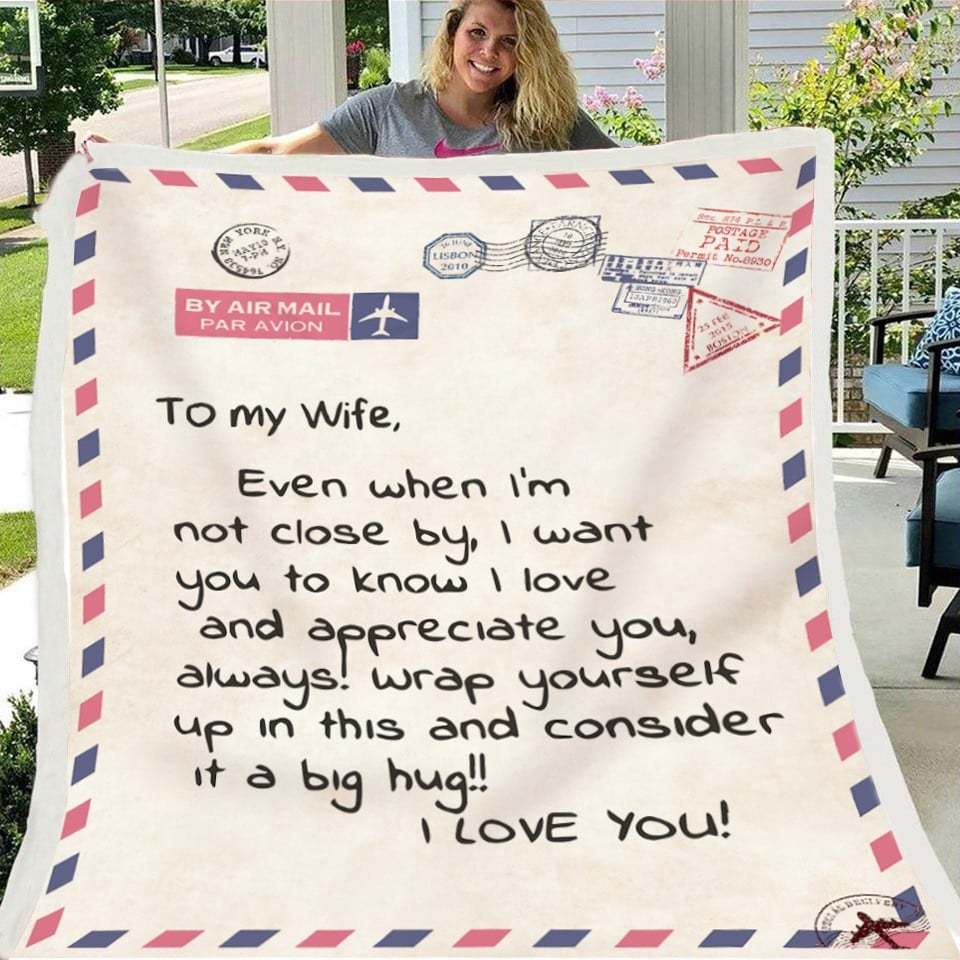 NEW YORK N.Y.
MAY 19
7-PM
LISBON
2010
POSTAGE
PAID
Permit No.8930
HONG KONG
25 FEB
2015
BOSTON
BY AIR MAIL
PAR AVION
To my Wife,
Even when I'm
not close by, I want
you to know I love
and appreciate you,
always! wrap yourself
up in this and consider
it a big hug!!
I LOVE YOU!
DELIVERY